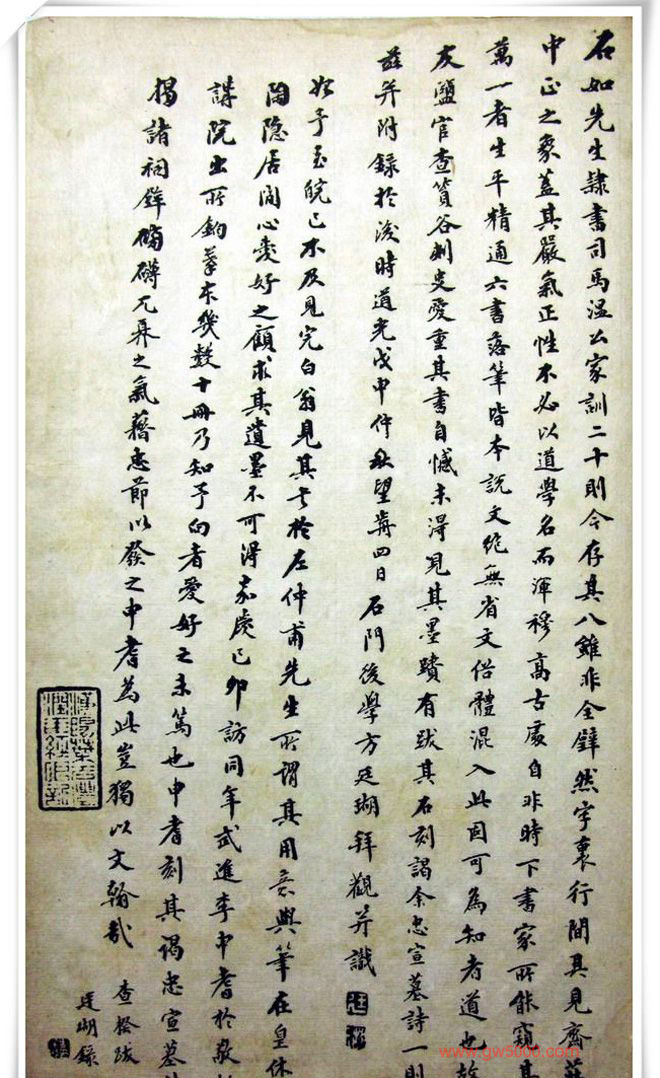 石如先生隸書司馬溫公家訓二十則今存其八雖非全璧然字裏行間具見齊莊
中正之象蓋其嚴氣正性不必以道學名而渾穆高古處自非時下書家所能窺其
萬一者生平精通六書落筆皆本說文絕無省文俗體混入此固可為知者道也故
友鹽官查篔谷刺史愛重其書自憾未得見其墨蹟有跋其石刻謁余忠宣墓詩一則
茲并附錄於後時道光戊申仲秋望前四日石門後學方廷瑚拜觀并識
始予至皖已不及見完白翁見其書於左仲甫先生所謂其用意與筆在皇休
陶隱居間心愛好之顧求其遺墨不可得嘉慶己卯訪同年武進李申耆於敬
講院出所鉤摹本幾數十冊乃知予向者愛好之未篤也申耆刻其謁忠宣墓
揭諸祠解磅礴兀奡之氣藉忠節以發之申耆為此豈獨以文翰哉
查松跋
廷瑚錄
www.gw5000.com